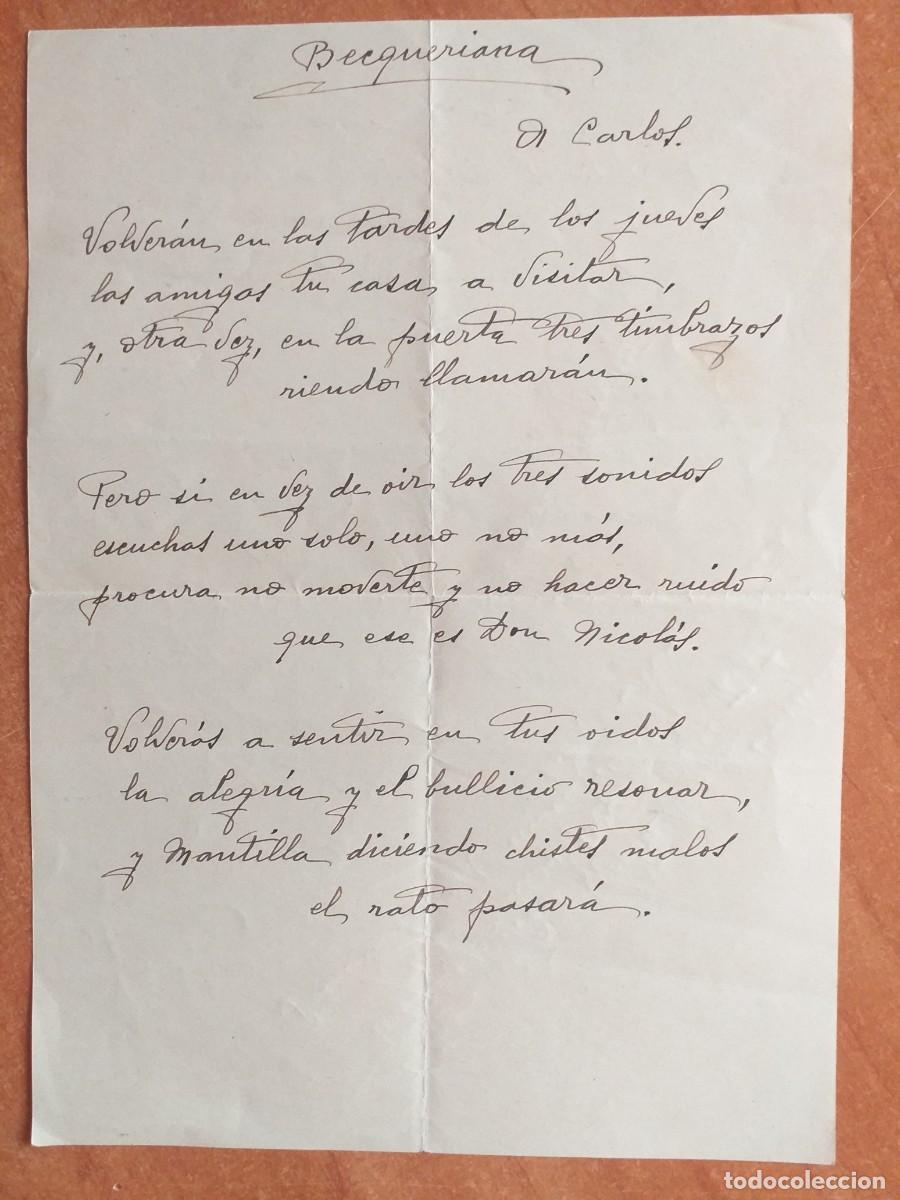 Becqueriana
A Carlos.
Volverán en las tardes de los jueves
los amigos tu casa a visitar,
y, otra vez, en la puerta tres timbrazos
riendo llamarán.
Pero si en vez de oir los tres sonidos
escuchas uno solo, uno no más,
procura no moverte y no hacer ruido
que ese es Don Nicolás.
Volverás a sentir en tus oidos
la alegría y el bullicio resonar,
y Mantilla diciendo chistes malos
el rato pasará.
todocoleccion